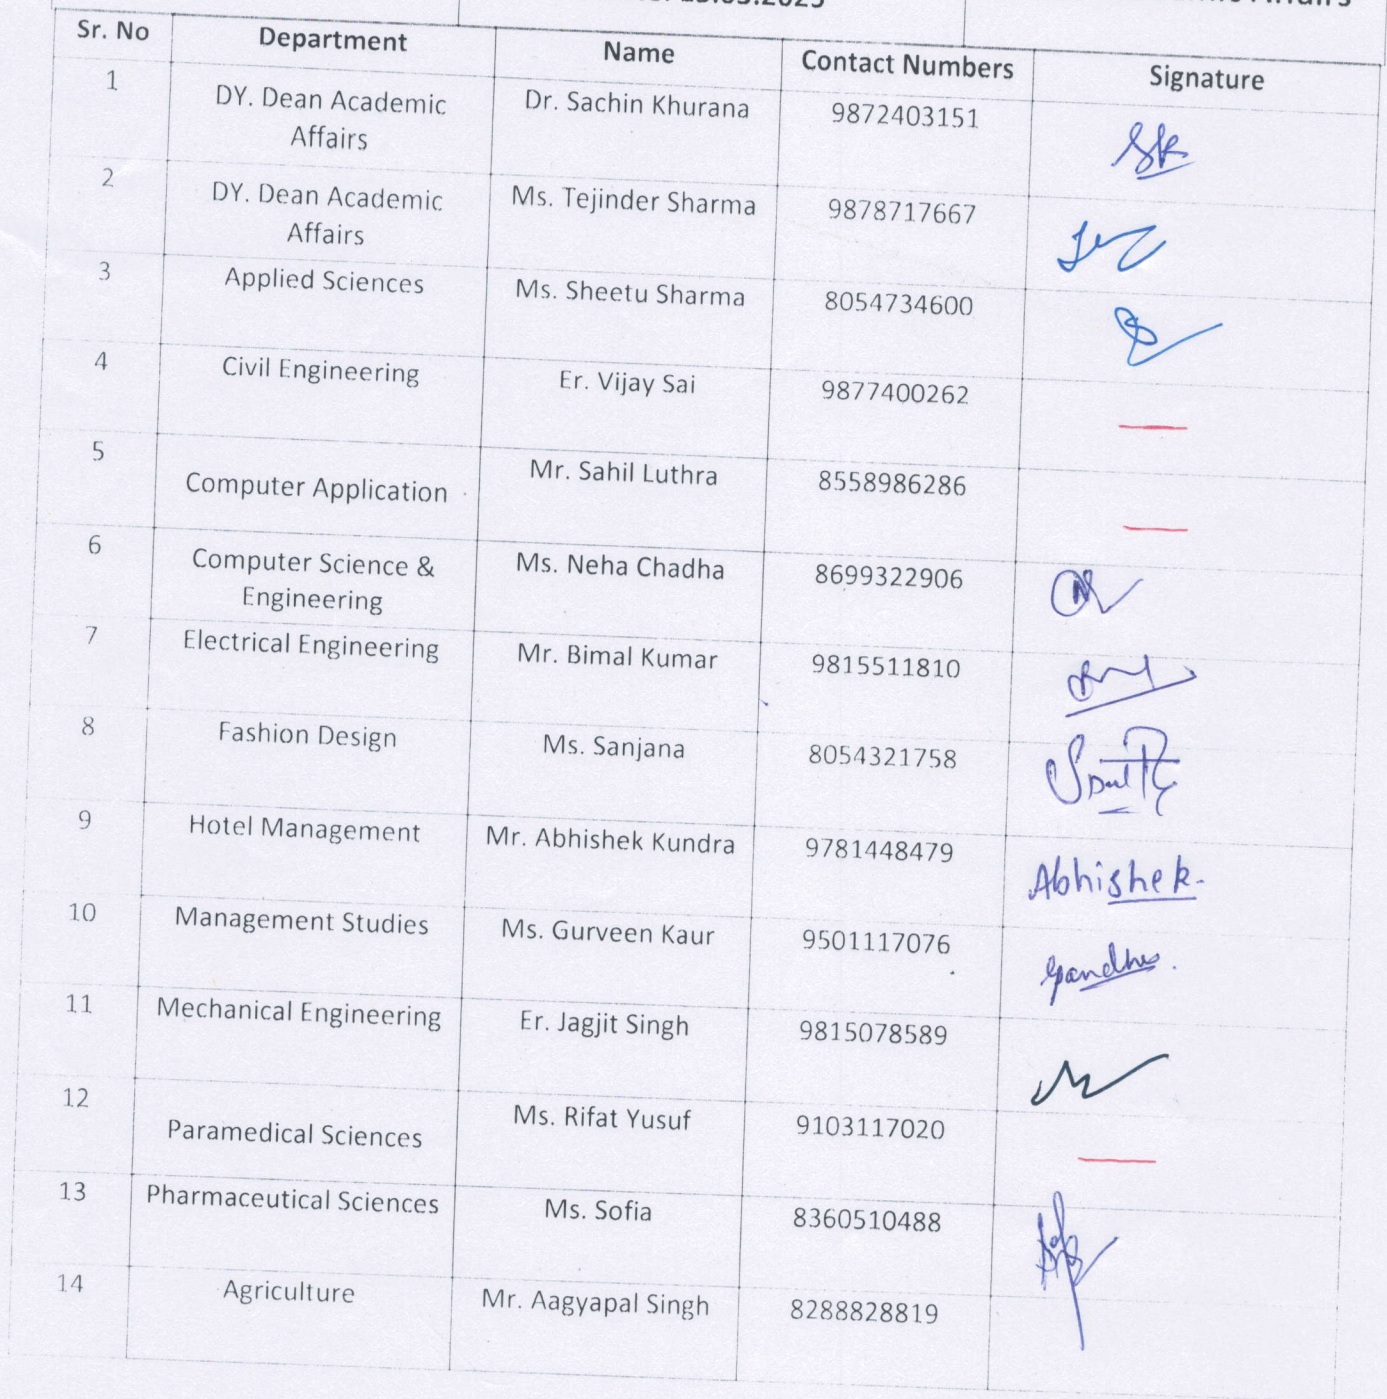 Sr. No Department Name Contact Numbers Signature
1 DY. Dean Academic Dr. Sachin Khurana 9872403151
Affairs
SK
2 DY. Dean Academic Ms. Tejinder Sharma 9878717667
Affairs
3 Applied Sciences Ms. Sheetu Sharma 8054734600
4 Civil Engineering Er. Vijay Sai 9877400262
5 Computer Application Mr. Sahil Luthra 8558986286
6 Computer Science & Ms. Neha Chadha 8699322906
Engineering
7 Electrical Engineering Mr. Bimal Kumar 9815511810
8 Fashion Design Ms. Sanjana 8054321758
9 Hotel Management Mr. Abhishek Kundra 9781448479 Abhishek.
10 Management Studies Ms. Gurveen Kaur 9501117076
11 Mechanical Engineering Er. Jagjit Singh 9815078589
12 Paramedical Sciences Ms. Rifat Yusuf 9103117020
13 Pharmaceutical Sciences Ms. Sofia 8360510488
14 Agriculture Mr. Aagyapal Singh 8288828819